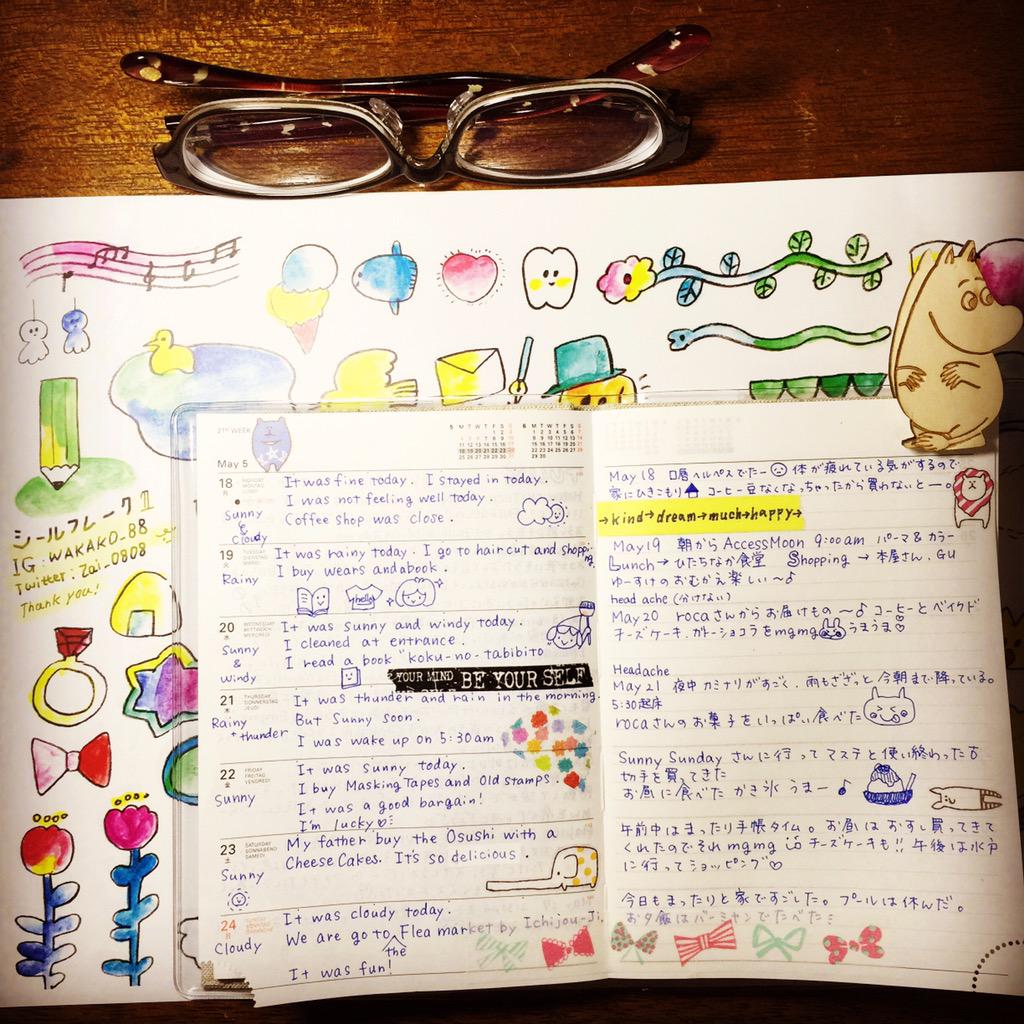 シールフレークⅡ
IG: WAKAKO_88
Twitter: Zai_0808
Thank you!
21ST WEEK
May 5
5 M T W T F S S
6 M T W T F S S
18
It was fine today. I stayed in today.
I was not feeling well today.
Sunny & Cloudy
Coffee shop was close.
19
It was rainy today. I go to hair cut and shopping.
Rainy
I buy wears and a book.
hello
20
It was sunny and windy today.
Sunny & windy
I cleaned at entrance.
I read a book "koku-no-tabibito
YOUR MIND BE YOUR SELF
21
It was thunder and rain in the morning.
Rainy + thunder
But Sunny soon.
I was wake up on 5:30am
22
It was sunny today.
Sunny
I buy Masking Tapes and Old stamps.
It was a good bargain!
I'm lucky
23
My father buy the Osushi with a
Sunny
Cheese Cakes. It's so delicious.
24
It was cloudy today.
Cloudy
We are go to the Flea market by Ichijou-Ji.
It was fun!
May 18 口唇ヘルペスでたー 体が疲れている気がするので
家にひきこもり コーヒー豆なくなっちゃったから買わないとー。
→kind→dream→much→happy→
May19 朝から AccessMoon 9:00am パーマ&カラー
Lunch→ひたちなか食堂 Shopping→本屋さん、GU
ゆーすけのおむかえ楽しい〜♪
head ache (分けない)
May 20 rocaさんからお届けもの〜♪コーヒーとベイクド
チーズケーキ、ガトーショコラをmgmg うまうま♡
Headache
May 21 夜中カミナリがすごく、雨もざざっと今朝まで降っている。
5:30起床
rocaさんのお菓子をいっぱい食べた
Sunny Sunday さんに行ってマステと使い終わった古
切手を買ってきた
お昼に食べた かき氷 うまー♪
午前中はまったり手帳タイム。お昼はおすし買ってきて
くれたのでそれmgmg チーズケーキも!! 午後は水戸
に行ってショッピング♡
今日もまったりと家ですごした。プールは休んだ。
お夕飯はバーミヤンでたべた